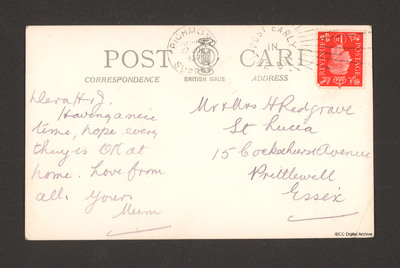 POST CARD
CORRESPONDENCE
BRITISH MADE
ADDRESS
RICHMOND
SURREY
POST EARLY
IN
REVENUE
POSTAGE
Dera H. J.
Having a nice
time, hope every
thing is OK at
home. Love from
all. Yours
Mum
Mr & Mrs H Redgrave
St Lucia
15 Cockethurst Avenue
Prittlewell
Essex
©CC Digital Archive